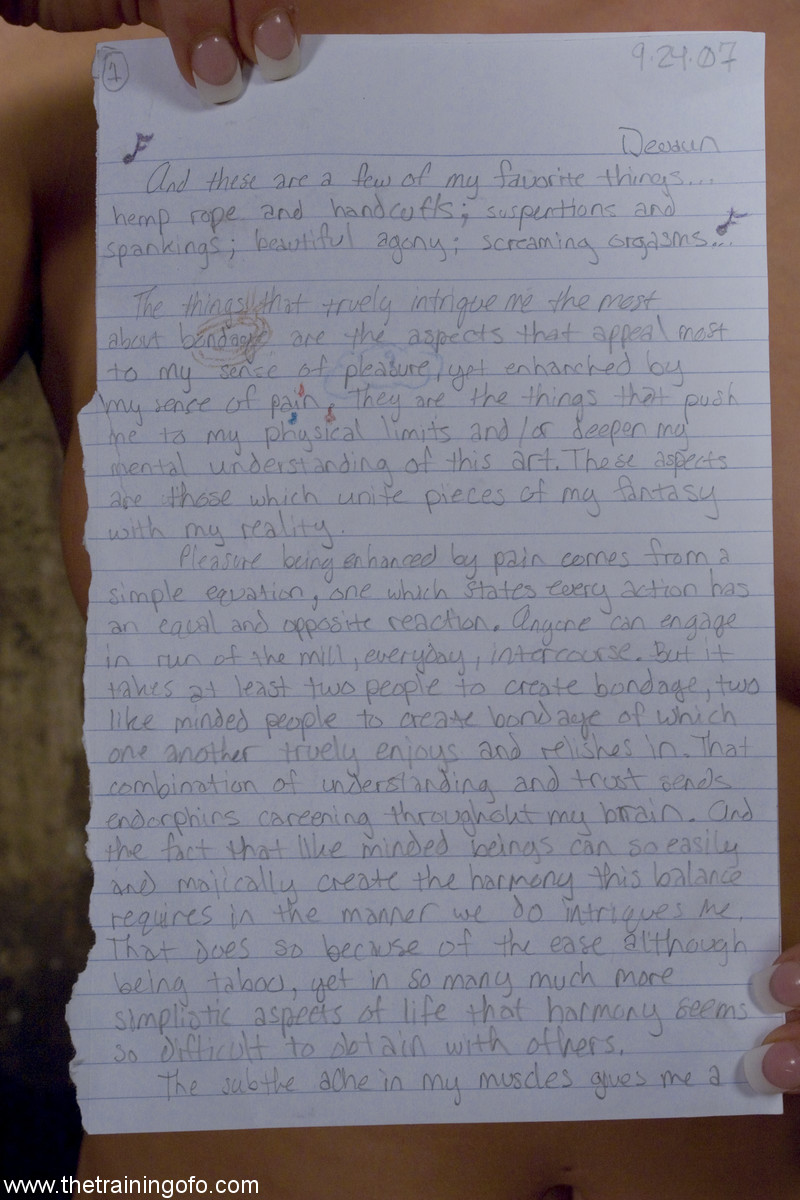 1
9.24.07
And these are a few of my favorite things...
hemp rope and handcuffs; suspentions and
spankings; beautiful agony; screaming orgasms...
The things that truely intrigue me the most
about bondage are the aspects that appeal most
to my sense of pleasure, yet enhanched by
my sense of pain. They are the things that push
me to my physical limits and/or deepen my
mental understanding of this art. These aspects
are those which unite pieces of my fantasy
with my reality.
Pleasure being enhanced by pain comes from a
simple equation, one which states every action has
an equal and opposite reaction. Anyone can engage
in run of the mill, everyday, intercourse. But it
takes at least two people to create bondage, two
like minded people to create bondage of which
one another truely enjoys and relishes in. That
combination of understanding and trust sends
endorphins careening throughout my brain. And
the fact that like minded beings can so easily
and majically create the harmony this balance
requires in the manner we do intrigues me.
That does so because of the ease although
being taboo, yet in so many much more
simplistic aspects of life that harmony seems
so difficult to obtain with others.
The subthe ache in my muscles gives me a
www.thetrainingofo.com